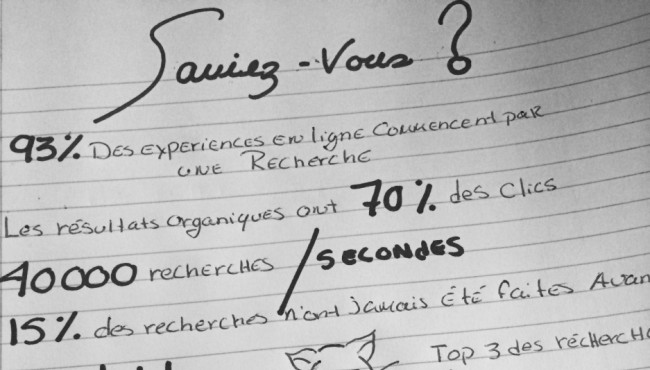 Saviez-Vous ?
93% Des experiences en ligne commencent par
une Recherche
Les résultats organiques ont 70% des clics
40000 recherches / SECONDES
15% des recherches n'ont jamais été faites Avan
Top 3 des recherch